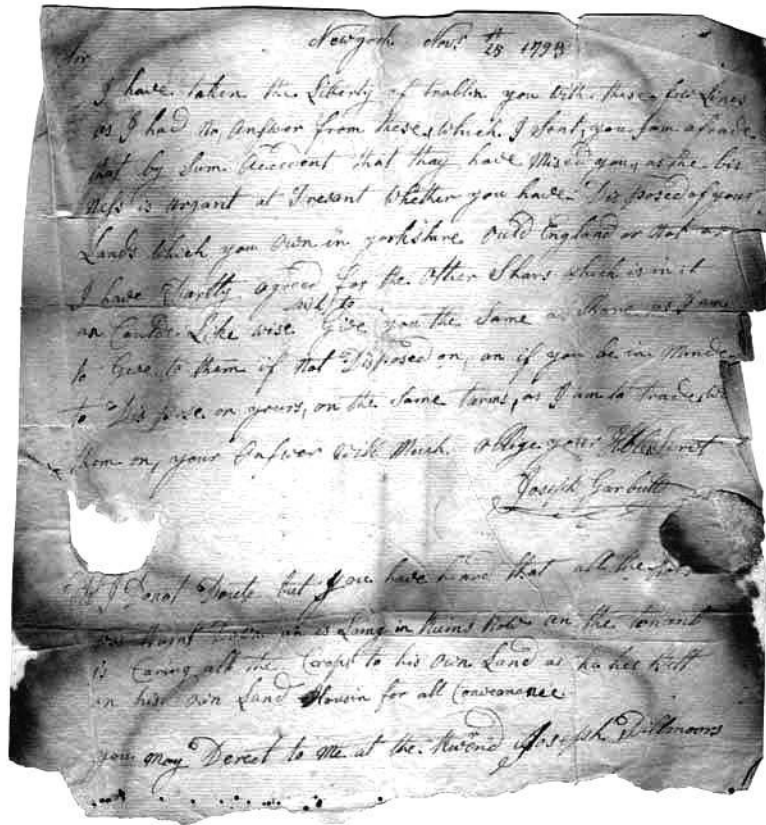 Newyork Novr 28th 1798
Sir
I have taken the Liberty of trablin you with these few Lines
as I had no Answer from these which I sent you I am afrade
that by Sum Accedent that thay have Mised you, as the bis
ness is urgant at Presant Whether you have Disposed of your
Lands which you Own in yorkshire Ould England or Not as
I have Partly Agreed for the Other Shars which is in it
an Could Like wise Give you the Same a Share as I am
to Give to them if Not Disposed on, an if you be in Minde
to Dis pose on yours, on the Same tarms, as I am to trade
them on, your Answer will Much Oblige your
Joseph Garbutt
PS Donot Doute but you have heard that all the
was Burnt Down an is Laing in Ruins Now an the tenant
is Caring all the Crops to his Own Land as he has Bilt
on his Own Land Housin for all Conveanance
you may Derect to Me at the Revend Joseph Pillmoors